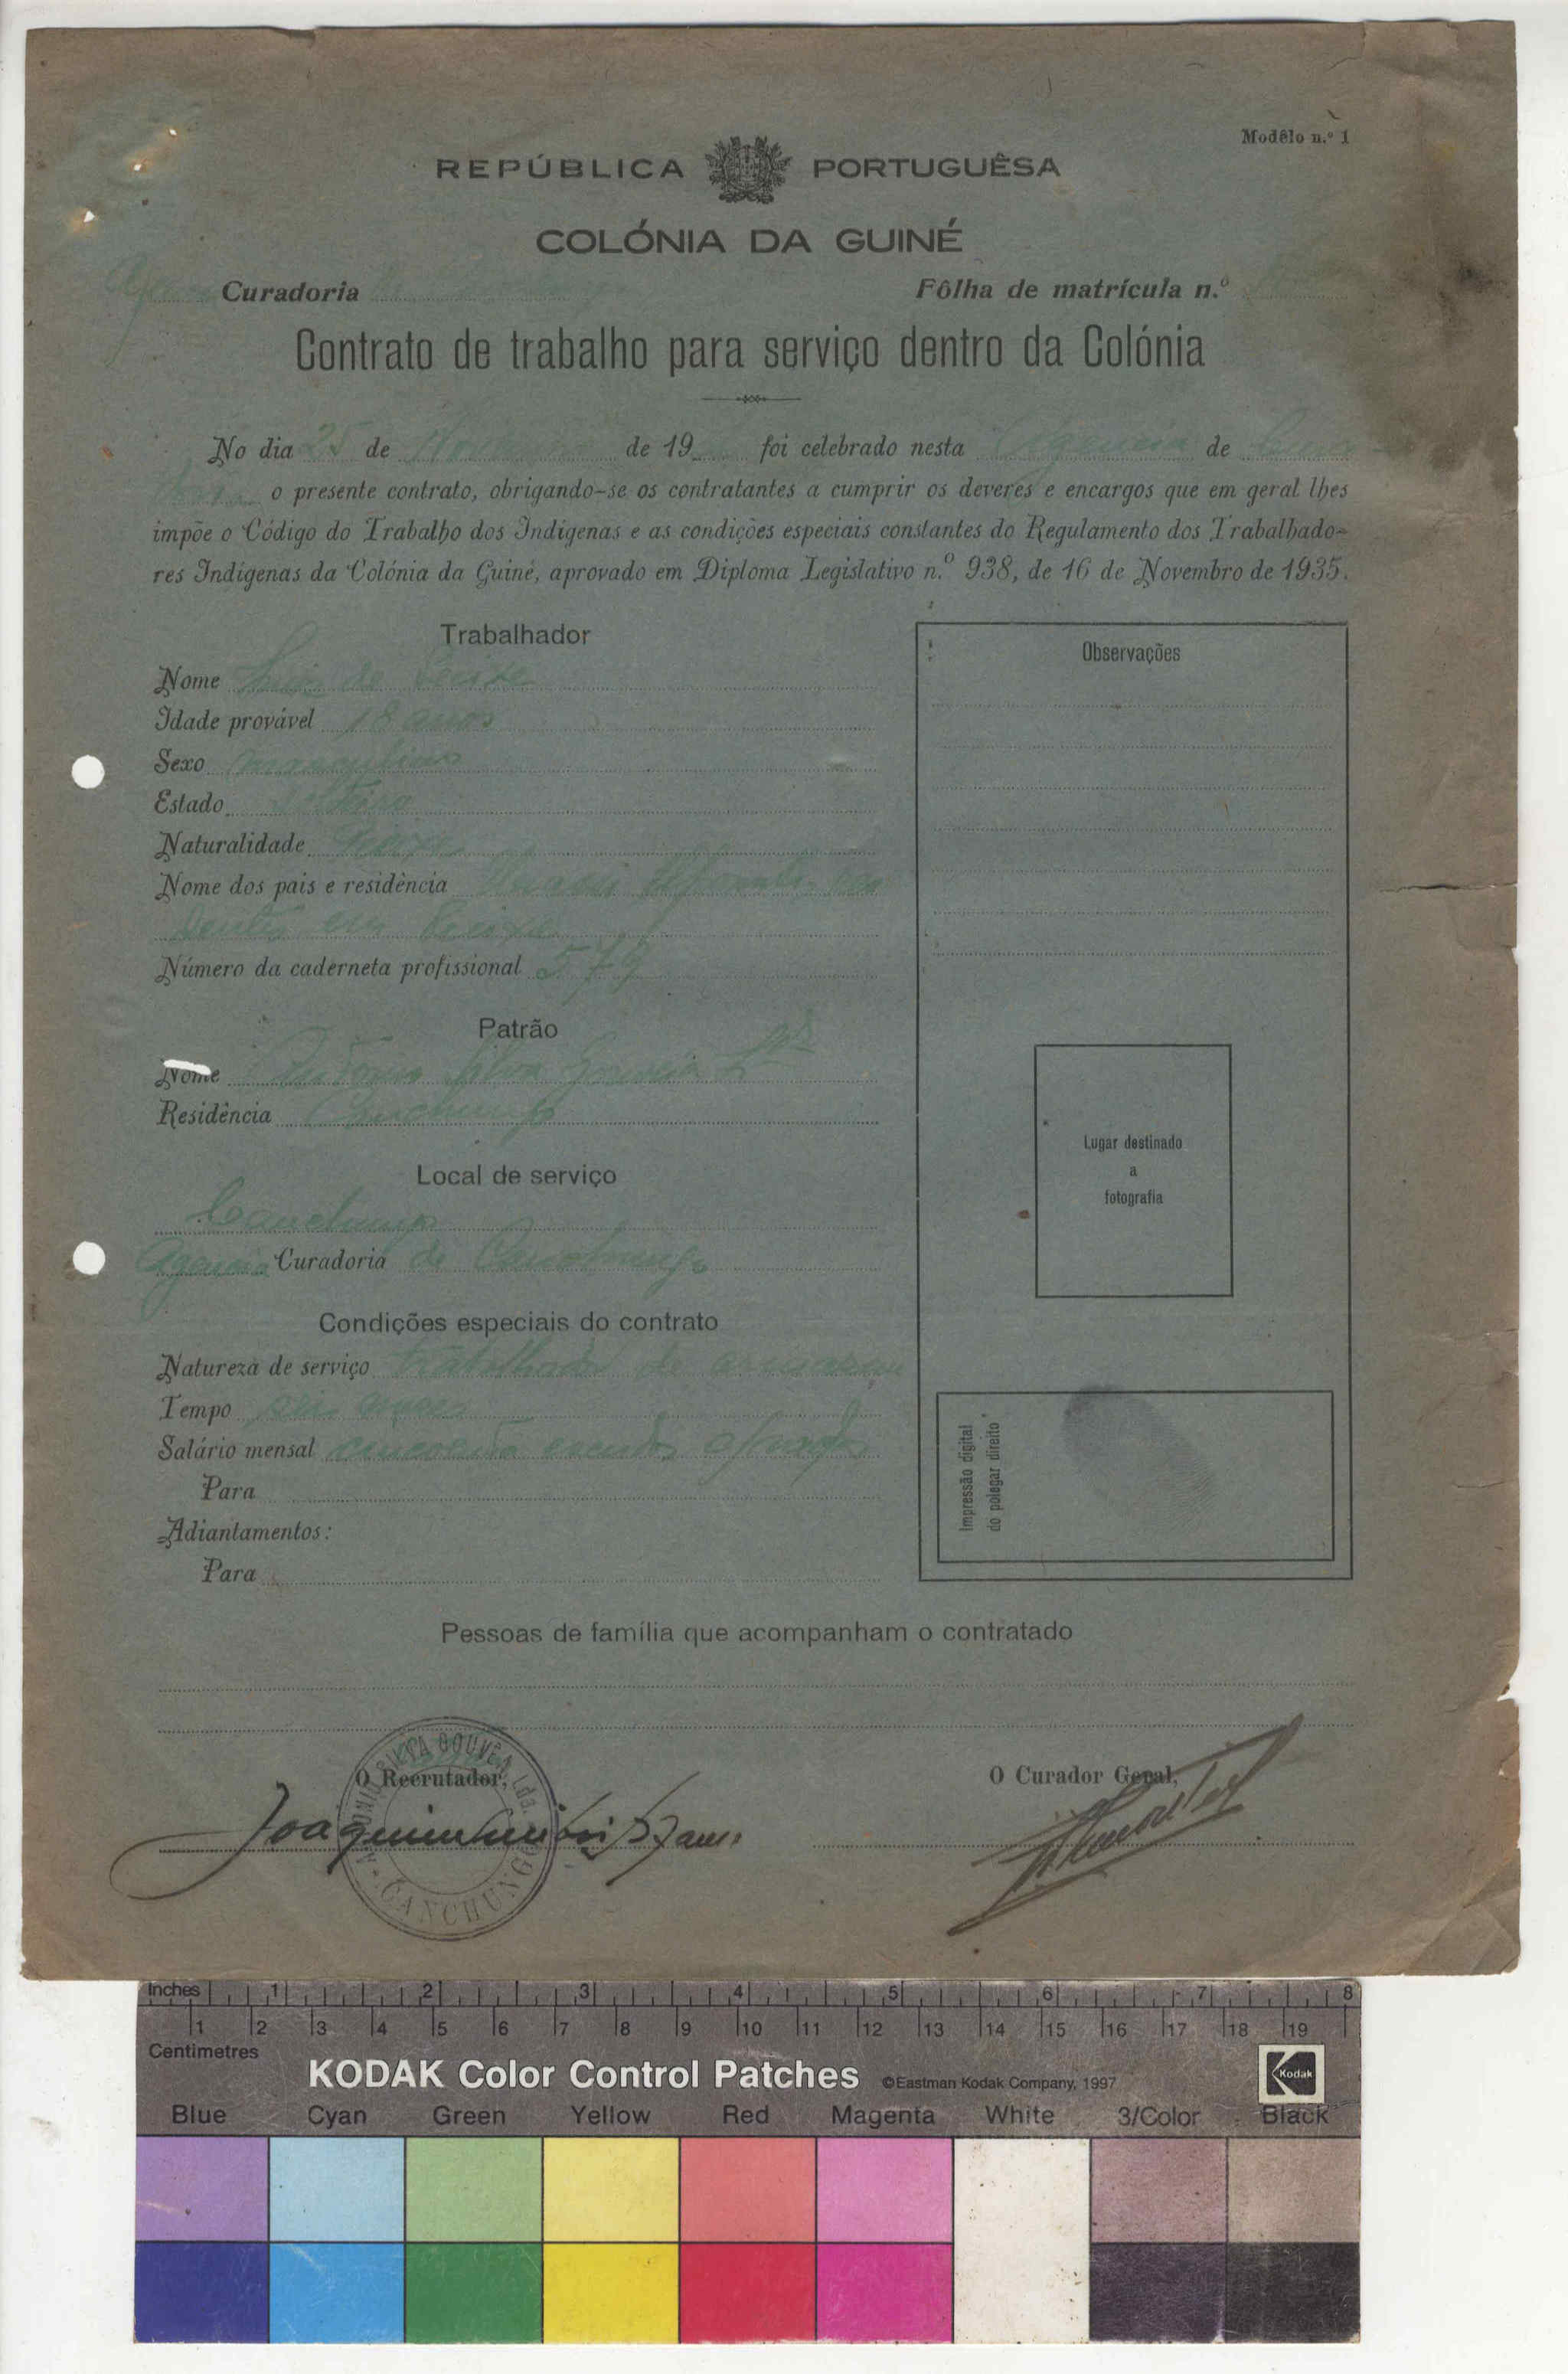 Modêlo n.º 1
REPÚBLICA PORTUGUÊSA
COLÓNIA DA GUINÉ
Curadoria Fôlha de matrícula n.º
Contrato de trabalho para serviço dentro da Colónia
No dia 25 de de 19 foi celebrado nesta Agencia de
o presente contrato, obrigando-se os contratantes a cumprir os deveres e encargos que em geral lhes
impõe o Código do Trabalho dos Indígenas e as condições especiais constantes do Regulamento dos Trabalhado-
res Indígenas da Colónia da Guiné, aprovado em Diploma Legislativo n.º 938, de 16 de Novembro de 1935.
Trabalhador
Nome de
Idade provável 18 anos
Sexo masculino
Estado solteiro
Naturalidade
Nome dos pais e residência
dentes em
Número da caderneta profissional 579
Patrão
Nome Antonio Silva Gouveia Lda
Residência Canchungo
Local de serviço
Canchungo
Agencia Curadoria de Canchungo
Condições especiais do contrato
Natureza de serviço trabalhador de armazem
Tempo seis meses
Salário mensal cincoenta escudos
Para
Adiantamentos:
Para
Observações
Lugar destinado
a
fotografia
Impressão digital
do polegar direito
Pessoas de família que acompanham o contratado
O Recrutador,
O Curador Geral,
Joaquim
ANTÓNIO SILVA GOUVÊA, Lda.
CANCHUNGO
Inches 1 2 3 4 5 6 7 8
1 2 3 4 5 6 7 8 9 10 11 12 13 14 15 16 17 18 19
Centimetres
KODAK Color Control Patches ©Eastman Kodak Company, 1997 Kodak
Blue Cyan Green Yellow Red Magenta White 3/Color Black